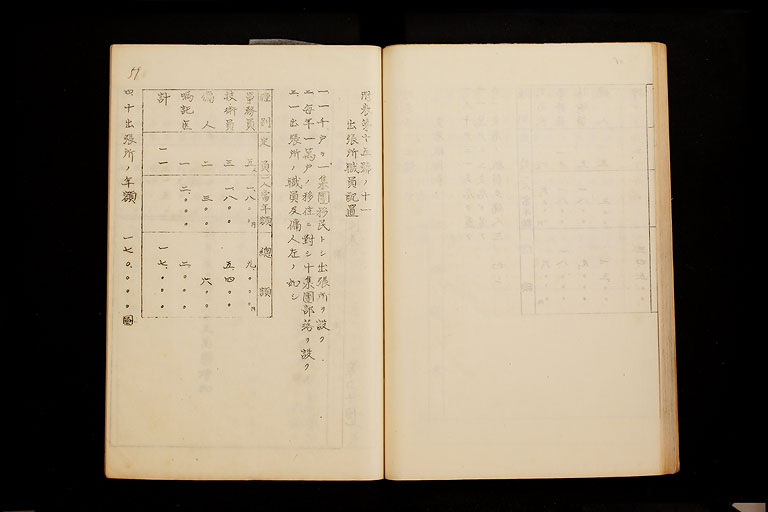 附参第十五號ノ十一
出張所職員配置
一、一千戸ヲ一集團移民トシ出張所ヲ設ク
二、每年一萬戸ノ移住ニ對シ十集團部落ヲ設ク
三、一出張所ノ職員及傭人左ノ如シ
種別 定員 一人當年額 總額
事務員 五人 一、八〇〇円 九、〇〇〇円
技術員 三 一、八〇〇 五、四〇〇
傭人 二 三〇〇 六〇〇
嘱託医 一 二、〇〇〇 二、〇〇〇
計 一一 一七、〇〇〇
四十出張所ノ年額 一七〇、〇〇〇圓
51